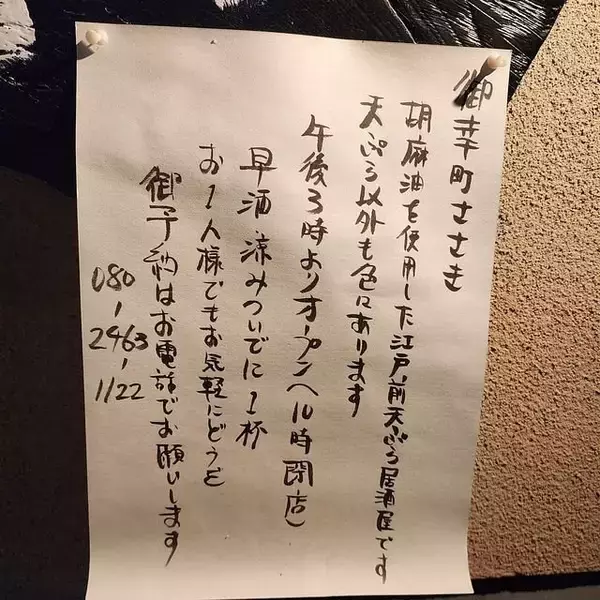 御幸町ささき
胡麻油を使用した江戸前天ぷら居酒屋です
天ぷら以外も色々あります
午後3時よりオープン(10時閉店)
早酒、涼みついでに1杯
お1人様でもお気軽にどうぞ
御予約はお電話でお願いします
080-2463-1122